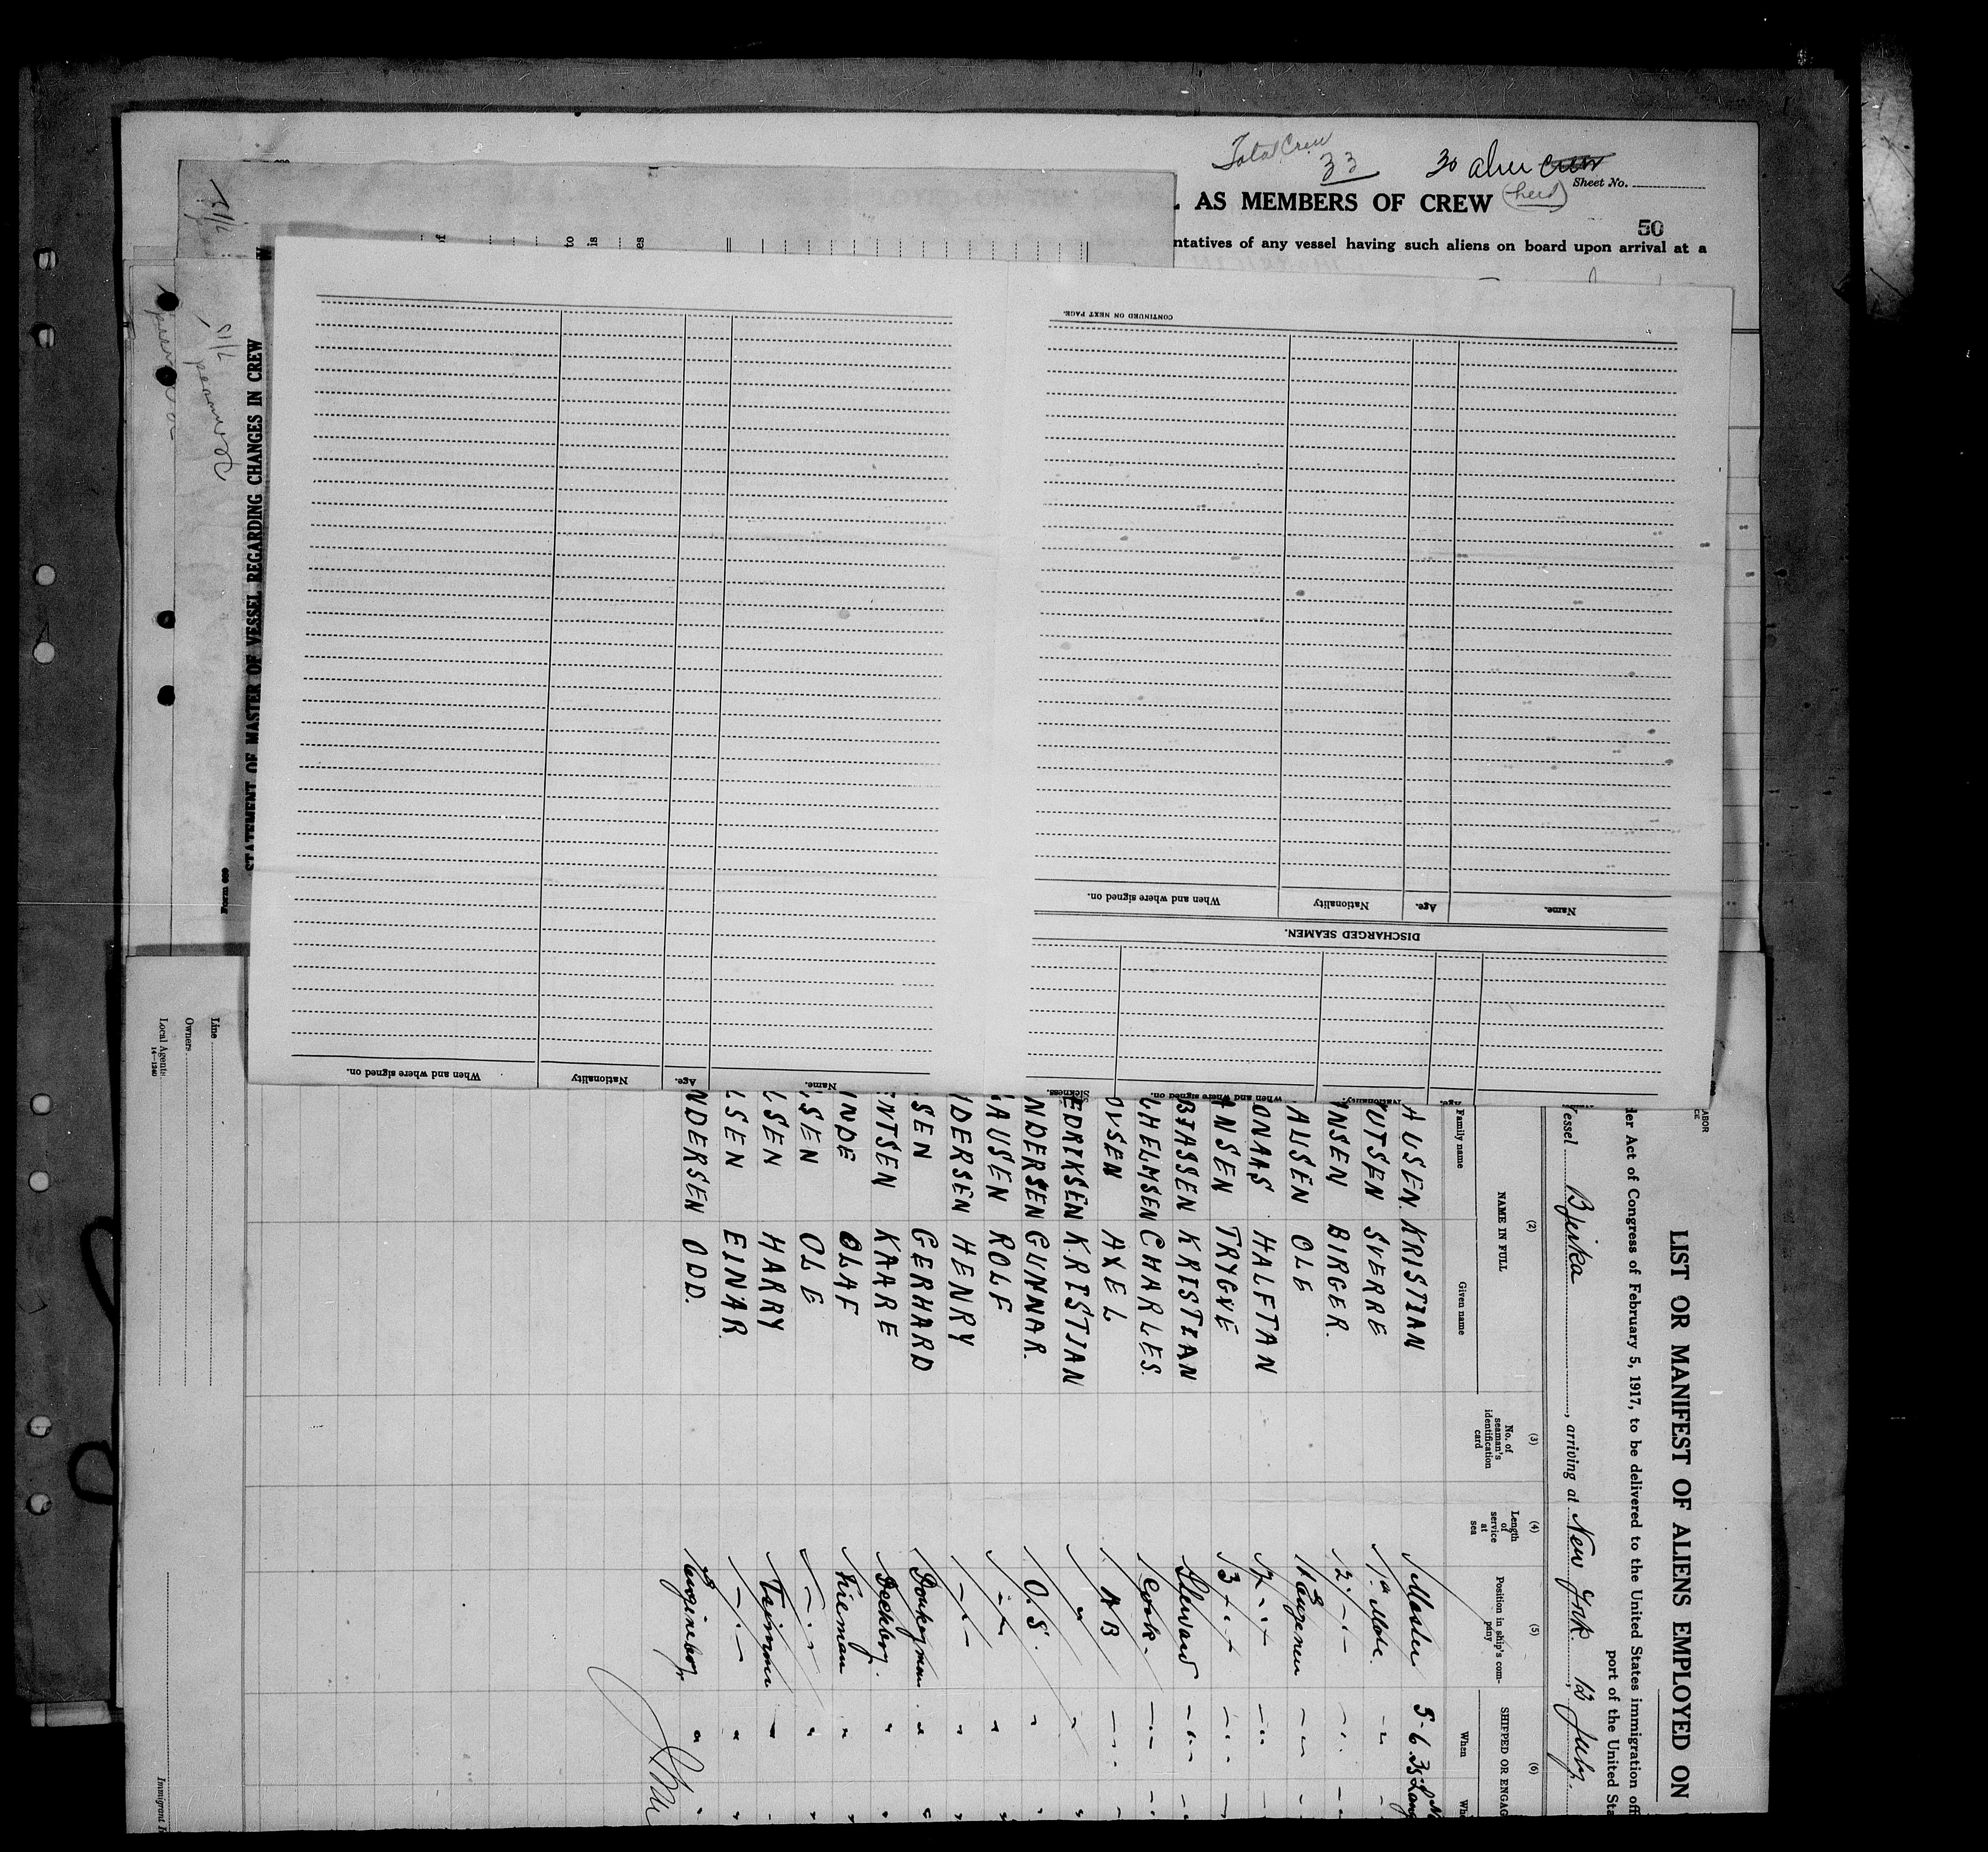 Total Crew
33
30
Sheet No.
AS MEMBERS OF CREW
50
ntatives of any vessel having such aliens on board upon arrival at a
7/15
to
is
es
7/15
STATEMENT OF MASTER OF VESSEL REGARDING CHANGES IN CREW
Form 689
CONTINUED ON NEXT PAGE.
Name.
Age.
Nationality
When and where signed on.
DISCHARGED SEAMEN.
Name.
Age.
Nationality
When and where signed on.
Age.
Nationality.
When and where signed on.
Sickness.
Line
Owners
Local Agents
14—1240
Immigrant I
LIST OR MANIFEST OF ALIENS EMPLOYED ON
der Act of Congress of February 5, 1917, to be delivered to the United States immigration off
port of the United Sta
Vessel Bjerka, arriving at New York. 12 July.
(2)
NAME IN FULL
Family name
Given name
(3)
No. of seaman's identification card
(4)
Length of service at sea
(5)
Position in ship's com-
pany
(6)
SHIPPED OR ENGAG
When
Whe
AUSEN. KRISTIAN Master 5-6.35
UTSEN SVERRE 1st Mate.
NSEN BIRGER. 2
AUSEN OLE 1st Engeneer
ONAAS HALFTAN 2
ANSEN TRYGVE 3
BJASSEN KRISTIAN Steward
LHELMSEN CHARLES. Cook.
OVSEN AXEL AB
EDRIKSEN KRISTJAN "
NDERSEN GUNNAR. O.S.
AUSEN ROLF
NDERSEN HENRY
SEN GERHARD Donkeyman
NTSEN KAARE Deckboy.
INDE OLAF Fireman
SEN OLE
LSEN HARRY Trimmer
LSEN EINAR.
NDERSEN ODD. Engineboy